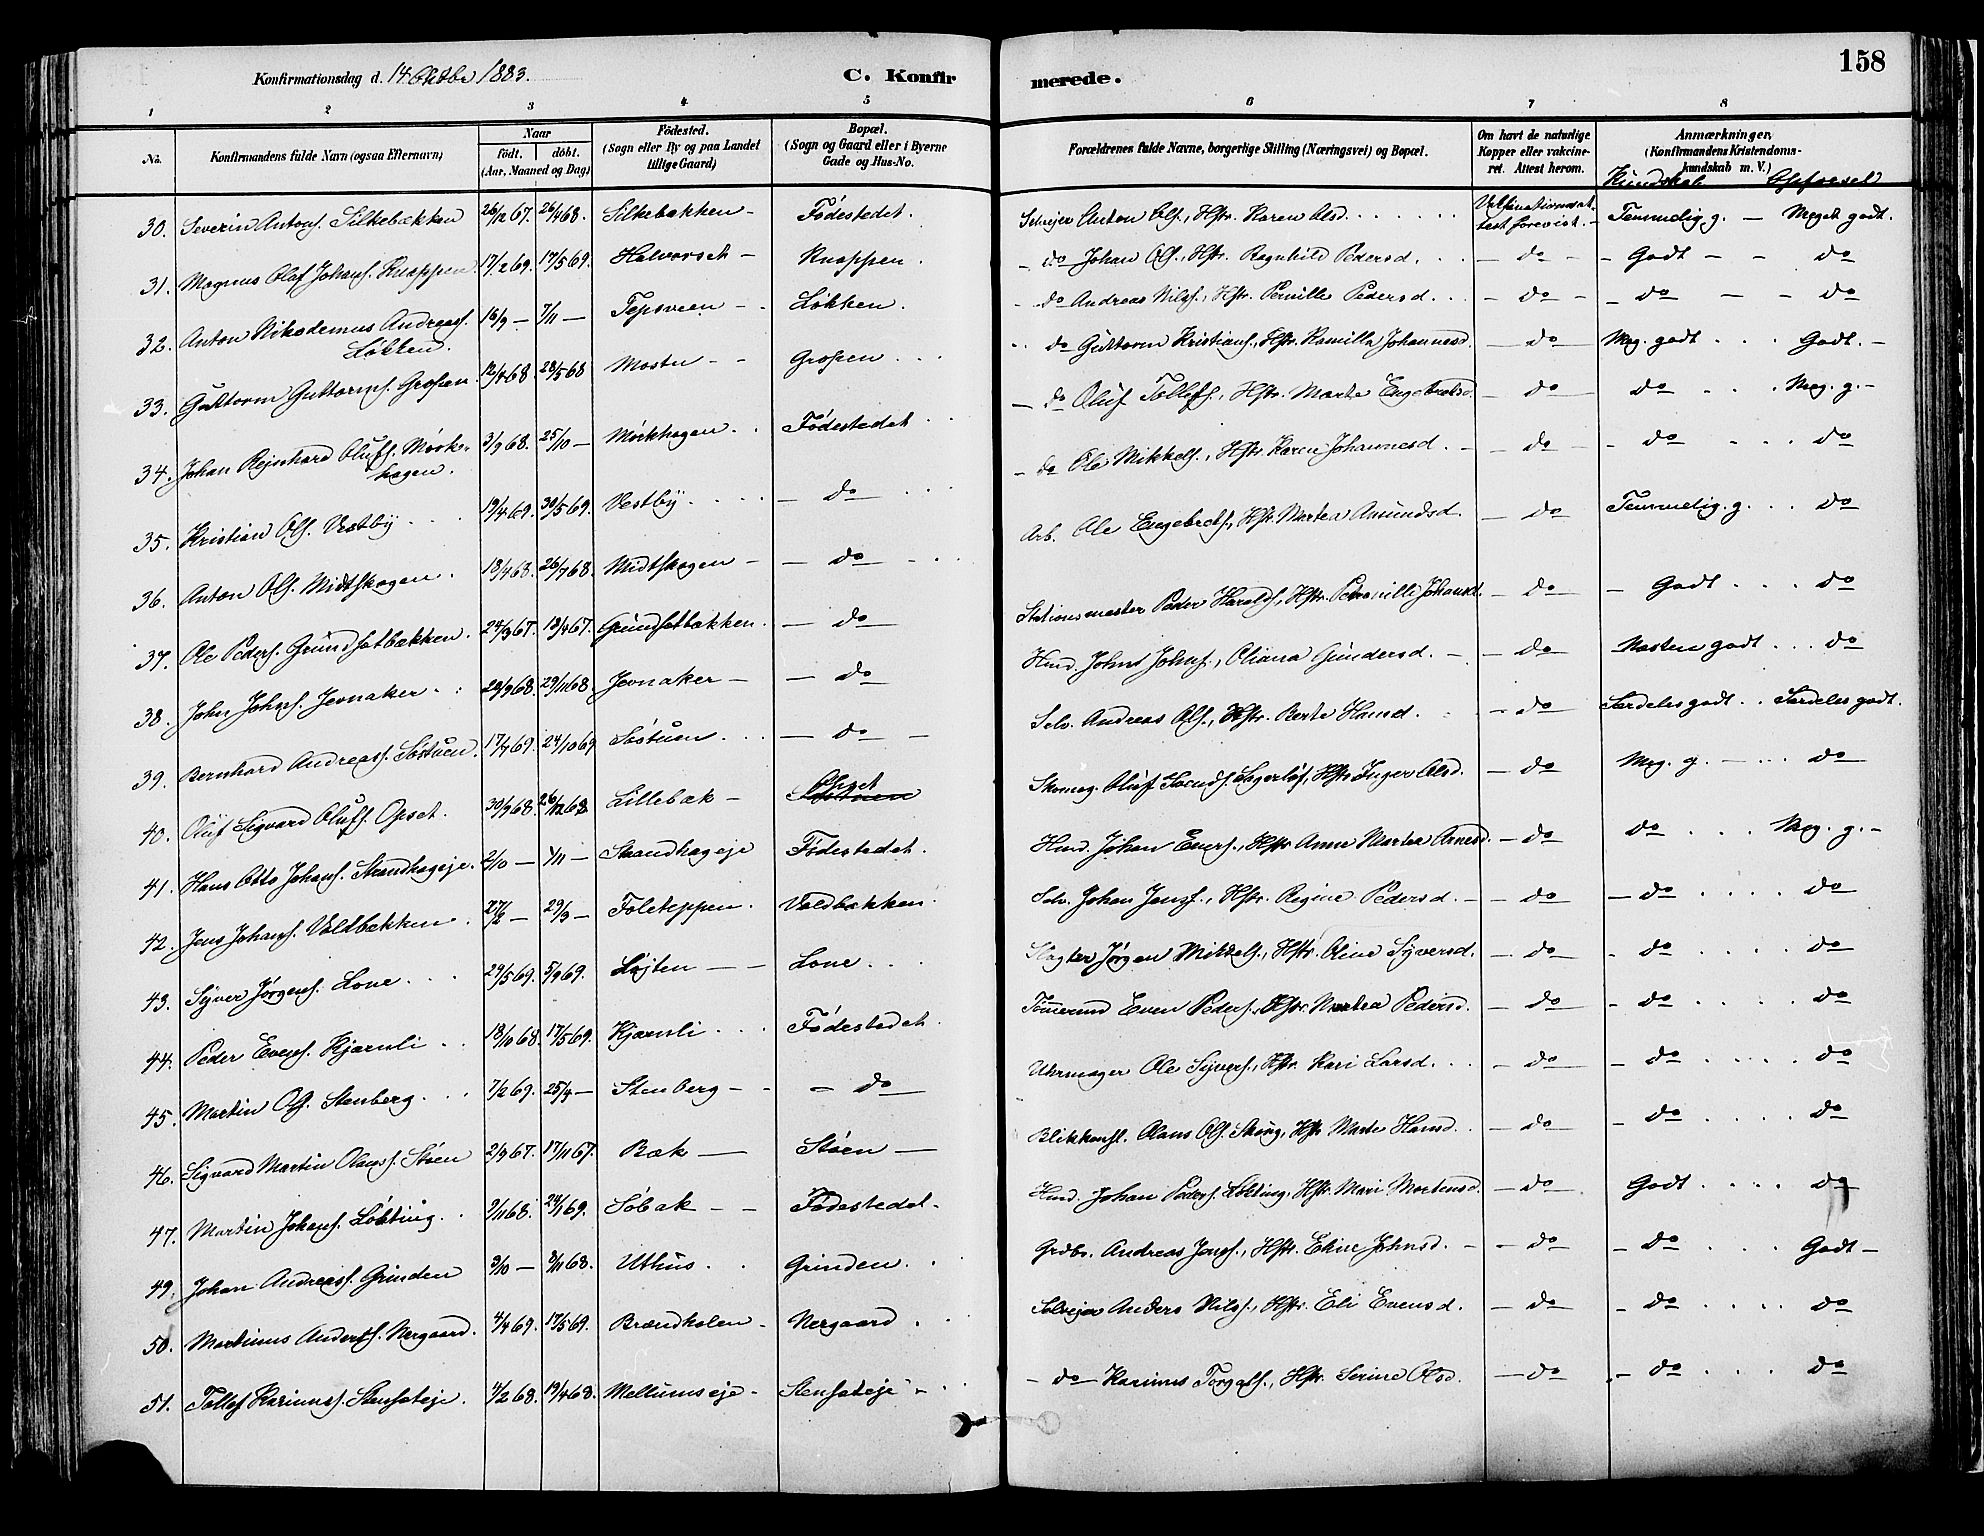 158
Konfirmationsdag d. 14 Oktbr 1883.
C. Konfirmerede.
1 2 3 4 5 6 7 8
No. | Konfirmandens fulde Navn (ogsaa Efternavn) | Naar født. døbt. (Aar, Maaned og Dag) | Fødested. (Sogn eller By og paa Landet tillige Gaard) | Bopæl. (Sogn og Gaard eller i Byerne Gade og Hus-No. | Forældrenes fulde Navne, borgerlige Stilling (Næringsvei) og Bopæl. | Om havt de naturlige Kopper eller vakcineret. Attest herom. | Anmærkninger, (Konfirmandens Kristendomskundskab m. V.) Kundskab
30. Severin Antons. Silkebakken 26/12 67. 26/4 68. Silkebakken - Fødestedet. Selvejer Anton Ols., Hstr. Karen Olsd. Vaksinationsattest forevist. - Temmelig g. - Meget godt.
31. Magnus Olaf Johans. Knappen 17/2 69. 17/5 69. Halvorset - Knappen. - do Johan Ols., Hstr. Ragnhild Pedersd. - do - - Godt - - do
32. Anton Nikodemus Andreass. Løkken. 16/9 - 7/11 - Tepsveen - Løkken. - do Andreas Nilss., Hstr. Pernille Pedersd. - do - - do - - do
33. Guttorm Guttorms. Grosen 12/4 68. 28/5 68 Mostu - - Grosen do Guttorm Kristians., Hstr. Kamilla Johannesd. - do Meg. godt Godt. -
34. Johan Rejnhard Olufs. Mørkhagen. 3/9 68. 25/10 - Mørkhagen. Fødestedet - do Oluf Tollefs., Hstr. Marte Engebretsd. - do do Meg. g. -
35. Kristian Ols. Vestby 19/4 69. 30/5 69. Vestby - do - do Ole Mikkels., Hstr. Karen Johannesd. - do - do do
36. Anton Ols. Midtskogen. 18/4 68. 26/7 68. Midtskogen - - do Arb. Ole Engebrets., Hstr. Martea Amundsd. - do Temmelig. g. do
37. Ole Peders. Grundsetbakken. 24/3 67. 18/4 67. Grundsetbakken. - do Stationsmester Peder Haralds., Hstr. Pernille Johansd. - do - Godt do
38. John Johns. Jevnaker. 28/9 68. 29/11 68. Jevnaker - - do Hmd. Johns Johns., Oliana Gundersd. - - do Næsten godt do
39. Bernhard Andreass. Søstuen. 17/7 69. 24/10 69 Søstuen - do - Selv. Andreas Ols., Hstr. Berte Hansd. - do Særdeles godt Særdeles godt.
40. Oluf Sigvard Olufs. Opset. 30/9 68. 26/12 68. Lillebæk - Opset Skomag. Oluf Svends. Sagerløs, Hstr. Inger Olsd. - do Meg. g. - do
41. Hans Otto Johans. Strandhageje. 2/10 - 1/11 - Strandhageje Fødestedet. Hmd. Johan Evers., Hstr Anne Martea Arnesd. - do do Meg. g. -
42. Jens Johans. Valdbakken. 27/2 - 29/3 - Foleteppen. Valdbakken. Selv. Johan Jens., Hstr. Regine Pedersd. - - do - do do
43. Syver Jørgens. Lone 29/5 69. 5/9 69. Løjten - - Lone Slagter Jørgen Mikkels., Hstr. Oline Syversd. - do - do do
44. Peder Evens. Kjærnli 18/10 68. 17/5 69. Kjærnli Fødestedet. Tømmermd Even Peders., Hstr. Martea Pedersd. - do - do do
45. Martin Ols. Stenberg. 7/2 69. 25/4 - Stenberg - - do Uhrmager Ole Syvers., Hstr. Kari Larsd. - do - do do
46. Sigvard Martin Olauss. Støen 2/9 67. 17/11 67. Bæk - Støen - Blikkensl. Olaus Ols. Skaug, Hstr. Marte Hansd. - do - do do
47. Martin Johans. Løbting. 2/11 68. 24/1 69. Søbak - - Fødestedet. Hmd. Johan Peders. Løbting, Hstr. Mari Mortensd. - do Godt do
49. Johan Andreass. Grinden 3/10 - 8/11 68. Uthus. Grinden. Grdbr. Andreas Jens., Hstr. Eline Johnsd. - - do - do Godt -
50. Martinus Anders. Nergaard. 4/4 69. 17/5 69. Brændholen - Nergaard Selvejer Anders Nilss., Hstr. Eli Evensd. - do - do do
51. Tollef Karinuss. Stensateje. 4/2 68. 19/4 68. Mellumseje - Stensateje - - do Karinus Torgals., Hstr. Serine Olsd. - do - do do